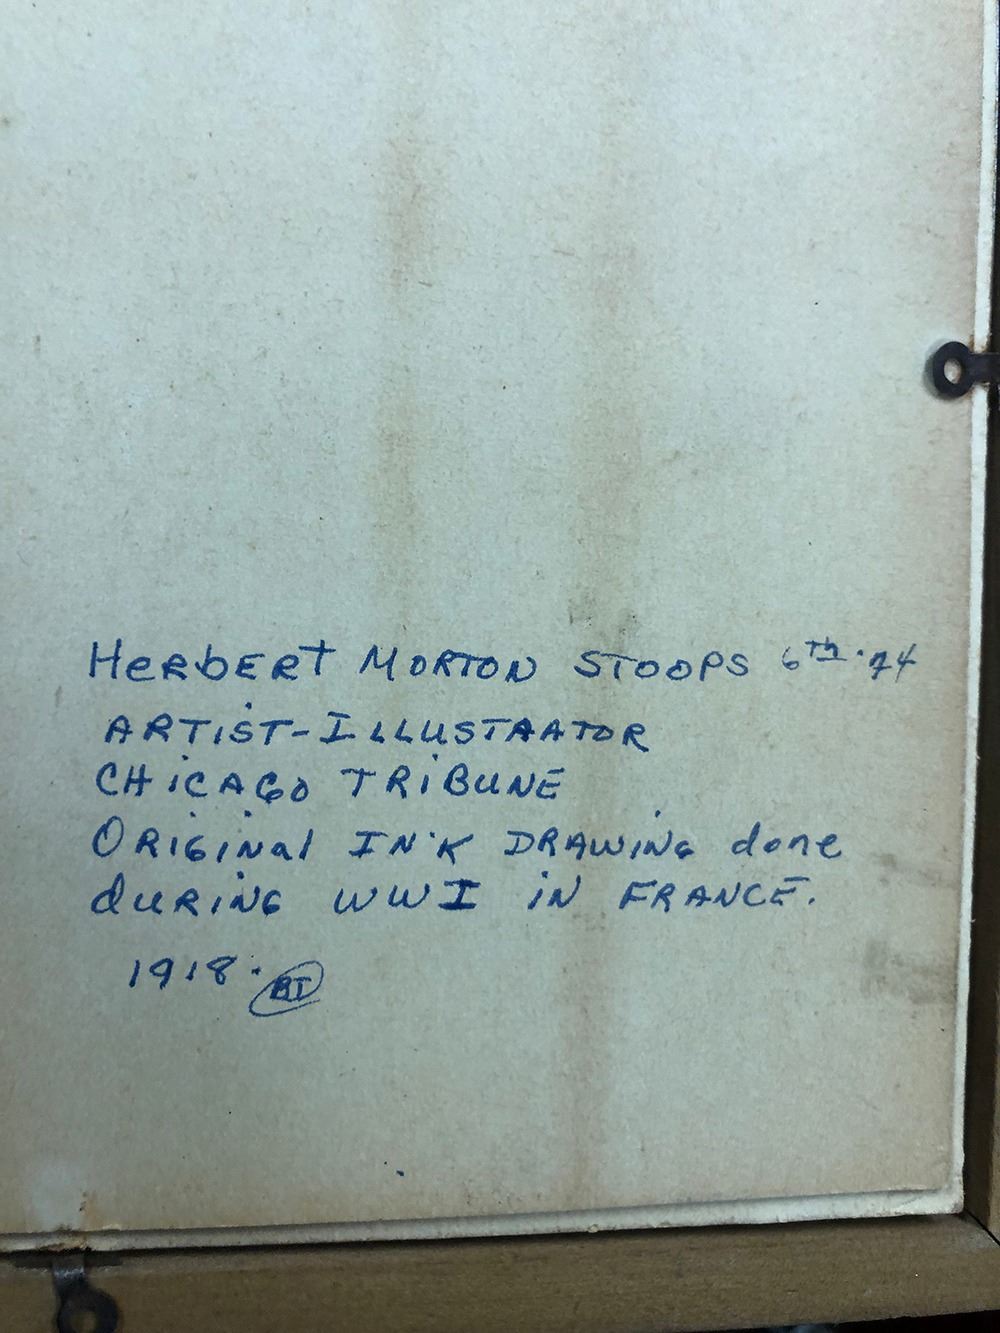 HERBERT MORTON STOOPS 6TH.
ARTIST-ILLUSTAATOR
CHICAGO TRIBUNE
ORIGINAL INK DRAWING done
dURING WWI iN FRANCE.
1918. BT